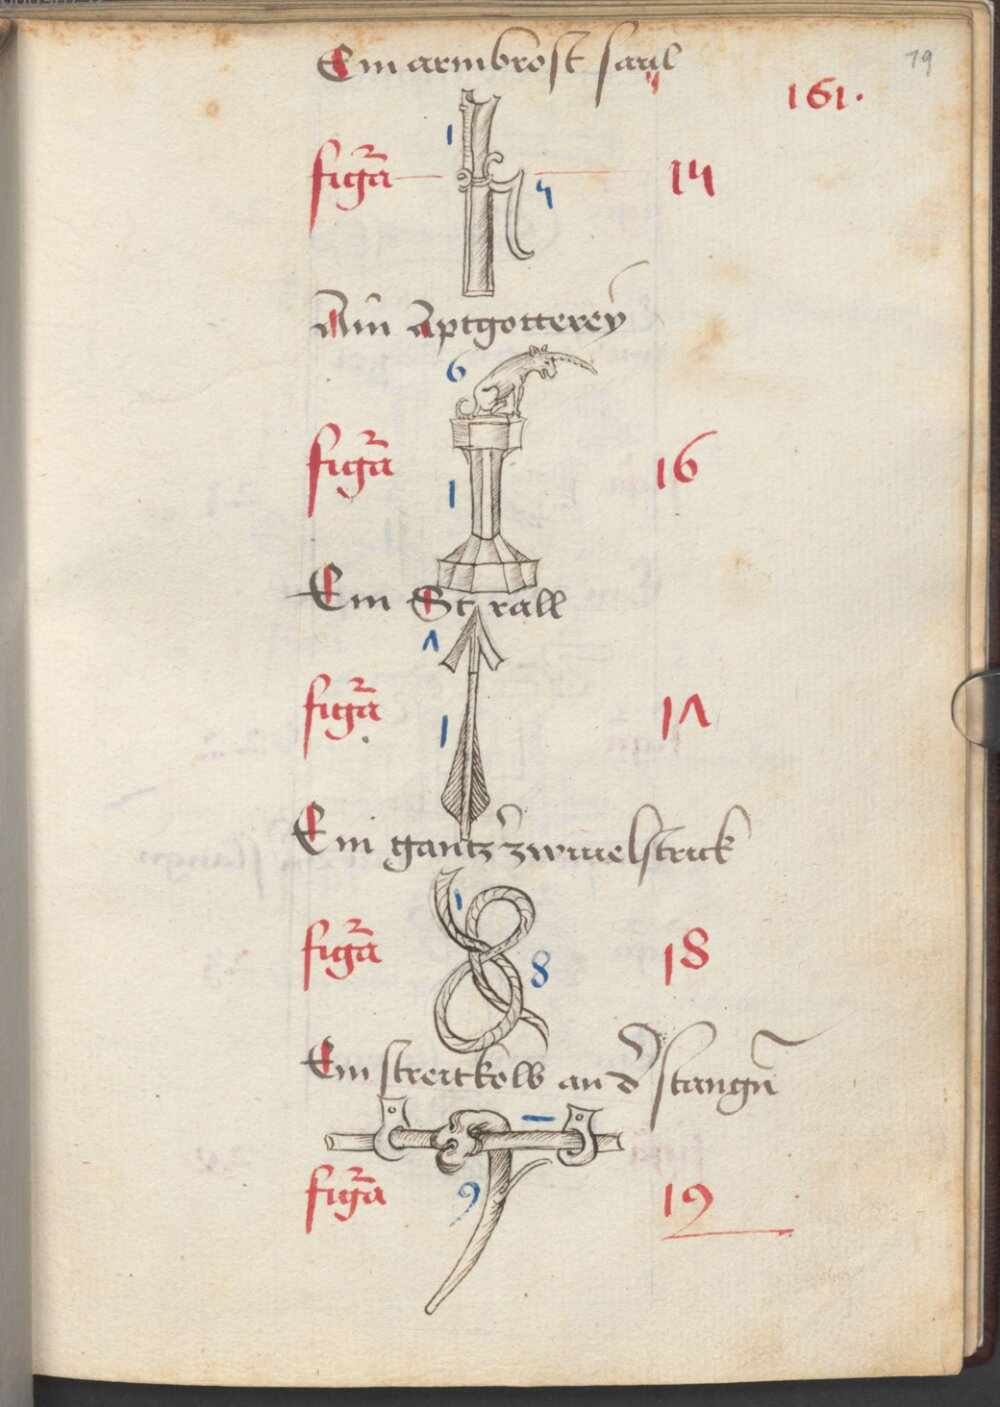 Ein armbrost saul
19
161.
1
figura
5
15
Ain Aptgotterey
6
figura
16
1
Ein Strall
7
figura
17
1
Ein gantz zwiuelstrick
1
figura
8
18
Ein streitkolb an der stangn
1
figura
9
19